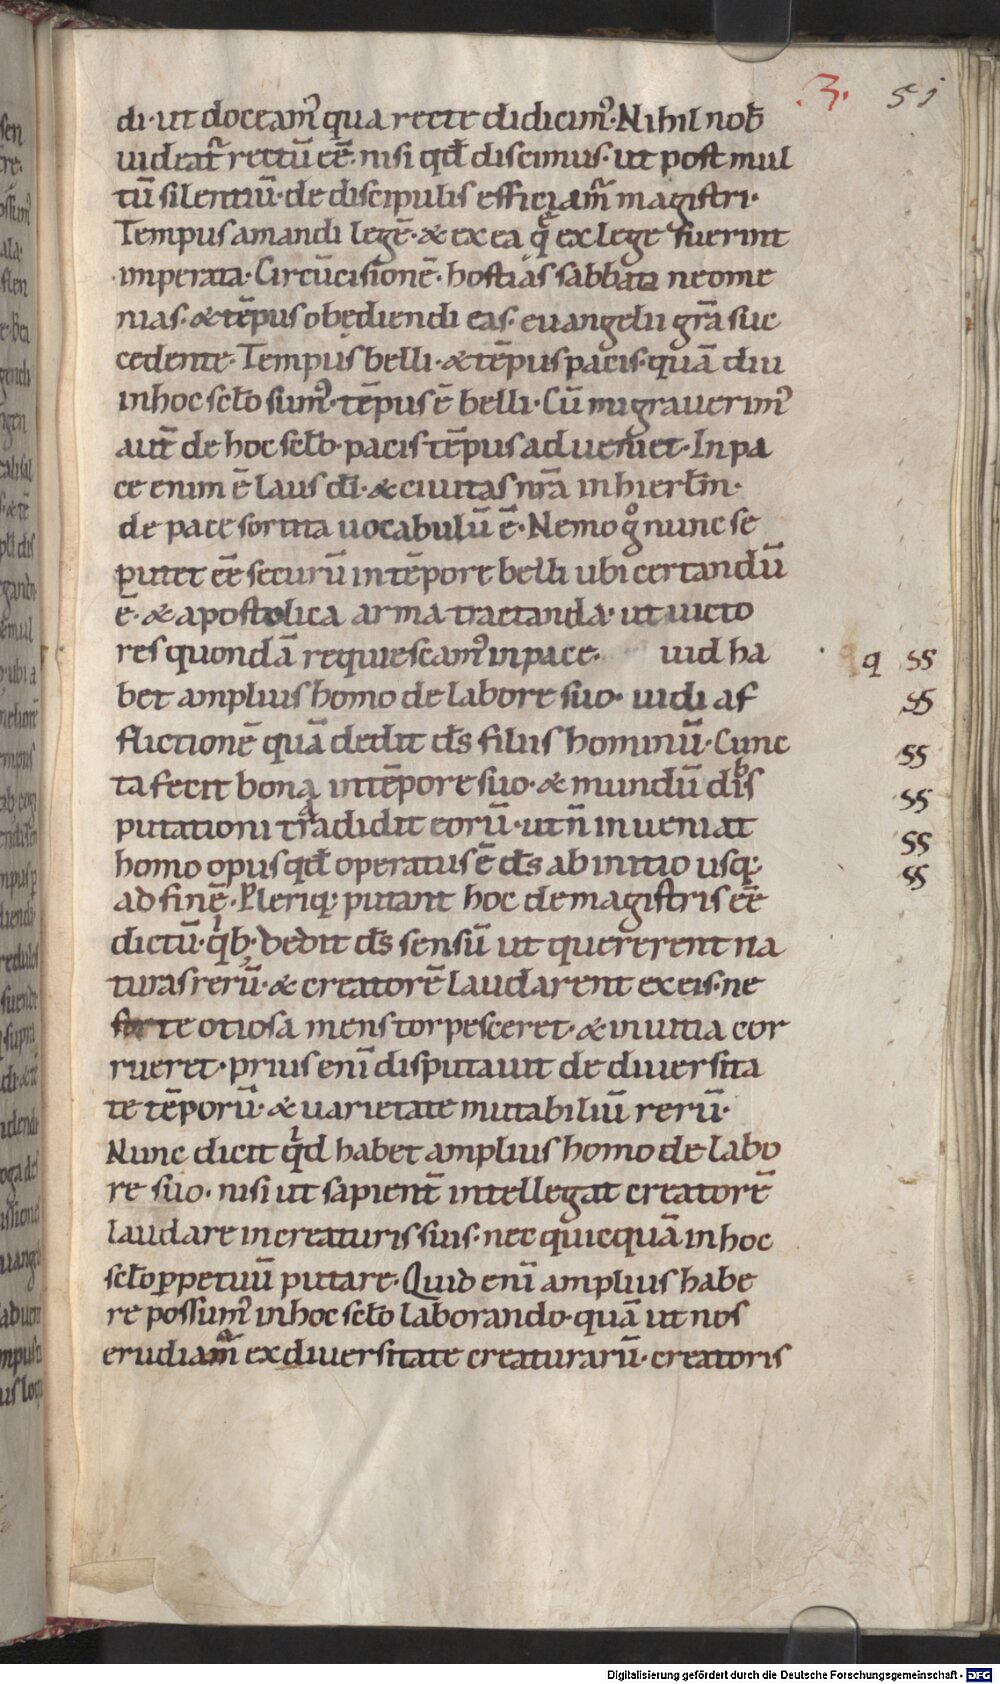 .3. 51
di·ut doceam᾽ qua recte didicim᾽·Nihil nob̅
uideat᾽ rectū ee̅· nisi qd̅ discimus· ut post mul
tū silentiū·de discipulis efficiam᾽ magistri·
Tempus amandi lege̅·& ex ea q̨̅ ex lege fuerint
imperata· Circu̅cisione̅·hostias sabbata neome
nias·& te̅pus obędiendi eas· euangelii gr̅a suc
cedente· Tempus belli·& te̅pus pacis·qua̅ diu
in hoc scl̅o sum᾽·te̅pus e̅ belli·Cu̅ migrauerim᾽
aut̅ de hoc scl̅o·pacis te̅pus adueniet·In pa
ce enim e̅ laus di̅·& ciuitas nr̅a in hierl̅m·
de pace sortita uocabulu̅ e̅·Nemo gͦ nunc se
putet ee̅ securu̅ in te̅pore belli ubi certandu̅
e̅·& apostolica arma tractanda·ut uicto
res quonda̅ requiescam᾽ in pace· uid ha q ss
bet amplius homo de labore suo· uidi af ss
flictione̅ qua̅ dedit ds̅ filiis hominu̅·Cunc ss
ta fecit bona in te̅pore suo·& mundu̅ dis ss
putationi tradidit eoru̅·ut n̅ inueniat ss
homo opus qd̅ operatus e̅ ds̅ ab initio usq; ss
ad fine̅·Pleriq; putant hoc de magistris ee̅
dictu̅·qͥb; dedit ds̅ sensu̅ ut quererent na
turas reru̅·& creatore̅ laudarent ex eis·ne
forte otiosa mens torpesceret·& in uitia cor
rueret·prius eni̅ disputauit de diuersita
te te̅poru̅·& uarietate mutabiliu̅ reru̅·
Nunc dicit qͥd habet amplius homo de labo
re suo·nisi ut sapient̅ intellegat creatore̅
laudare in creaturis suis·nec quicqua̅ in hoc
scl̅o p̱petuu̅ putare·Quid eni̅ amplius habe
re possum᾽ in hoc scl̅o laborando·qua̅ ut nos
erudiam᾽ ex diuersitate creaturaru̅·creatoris
Digitalisierung gefördert durch die Deutsche Forschungsgemeinschaft - DFG